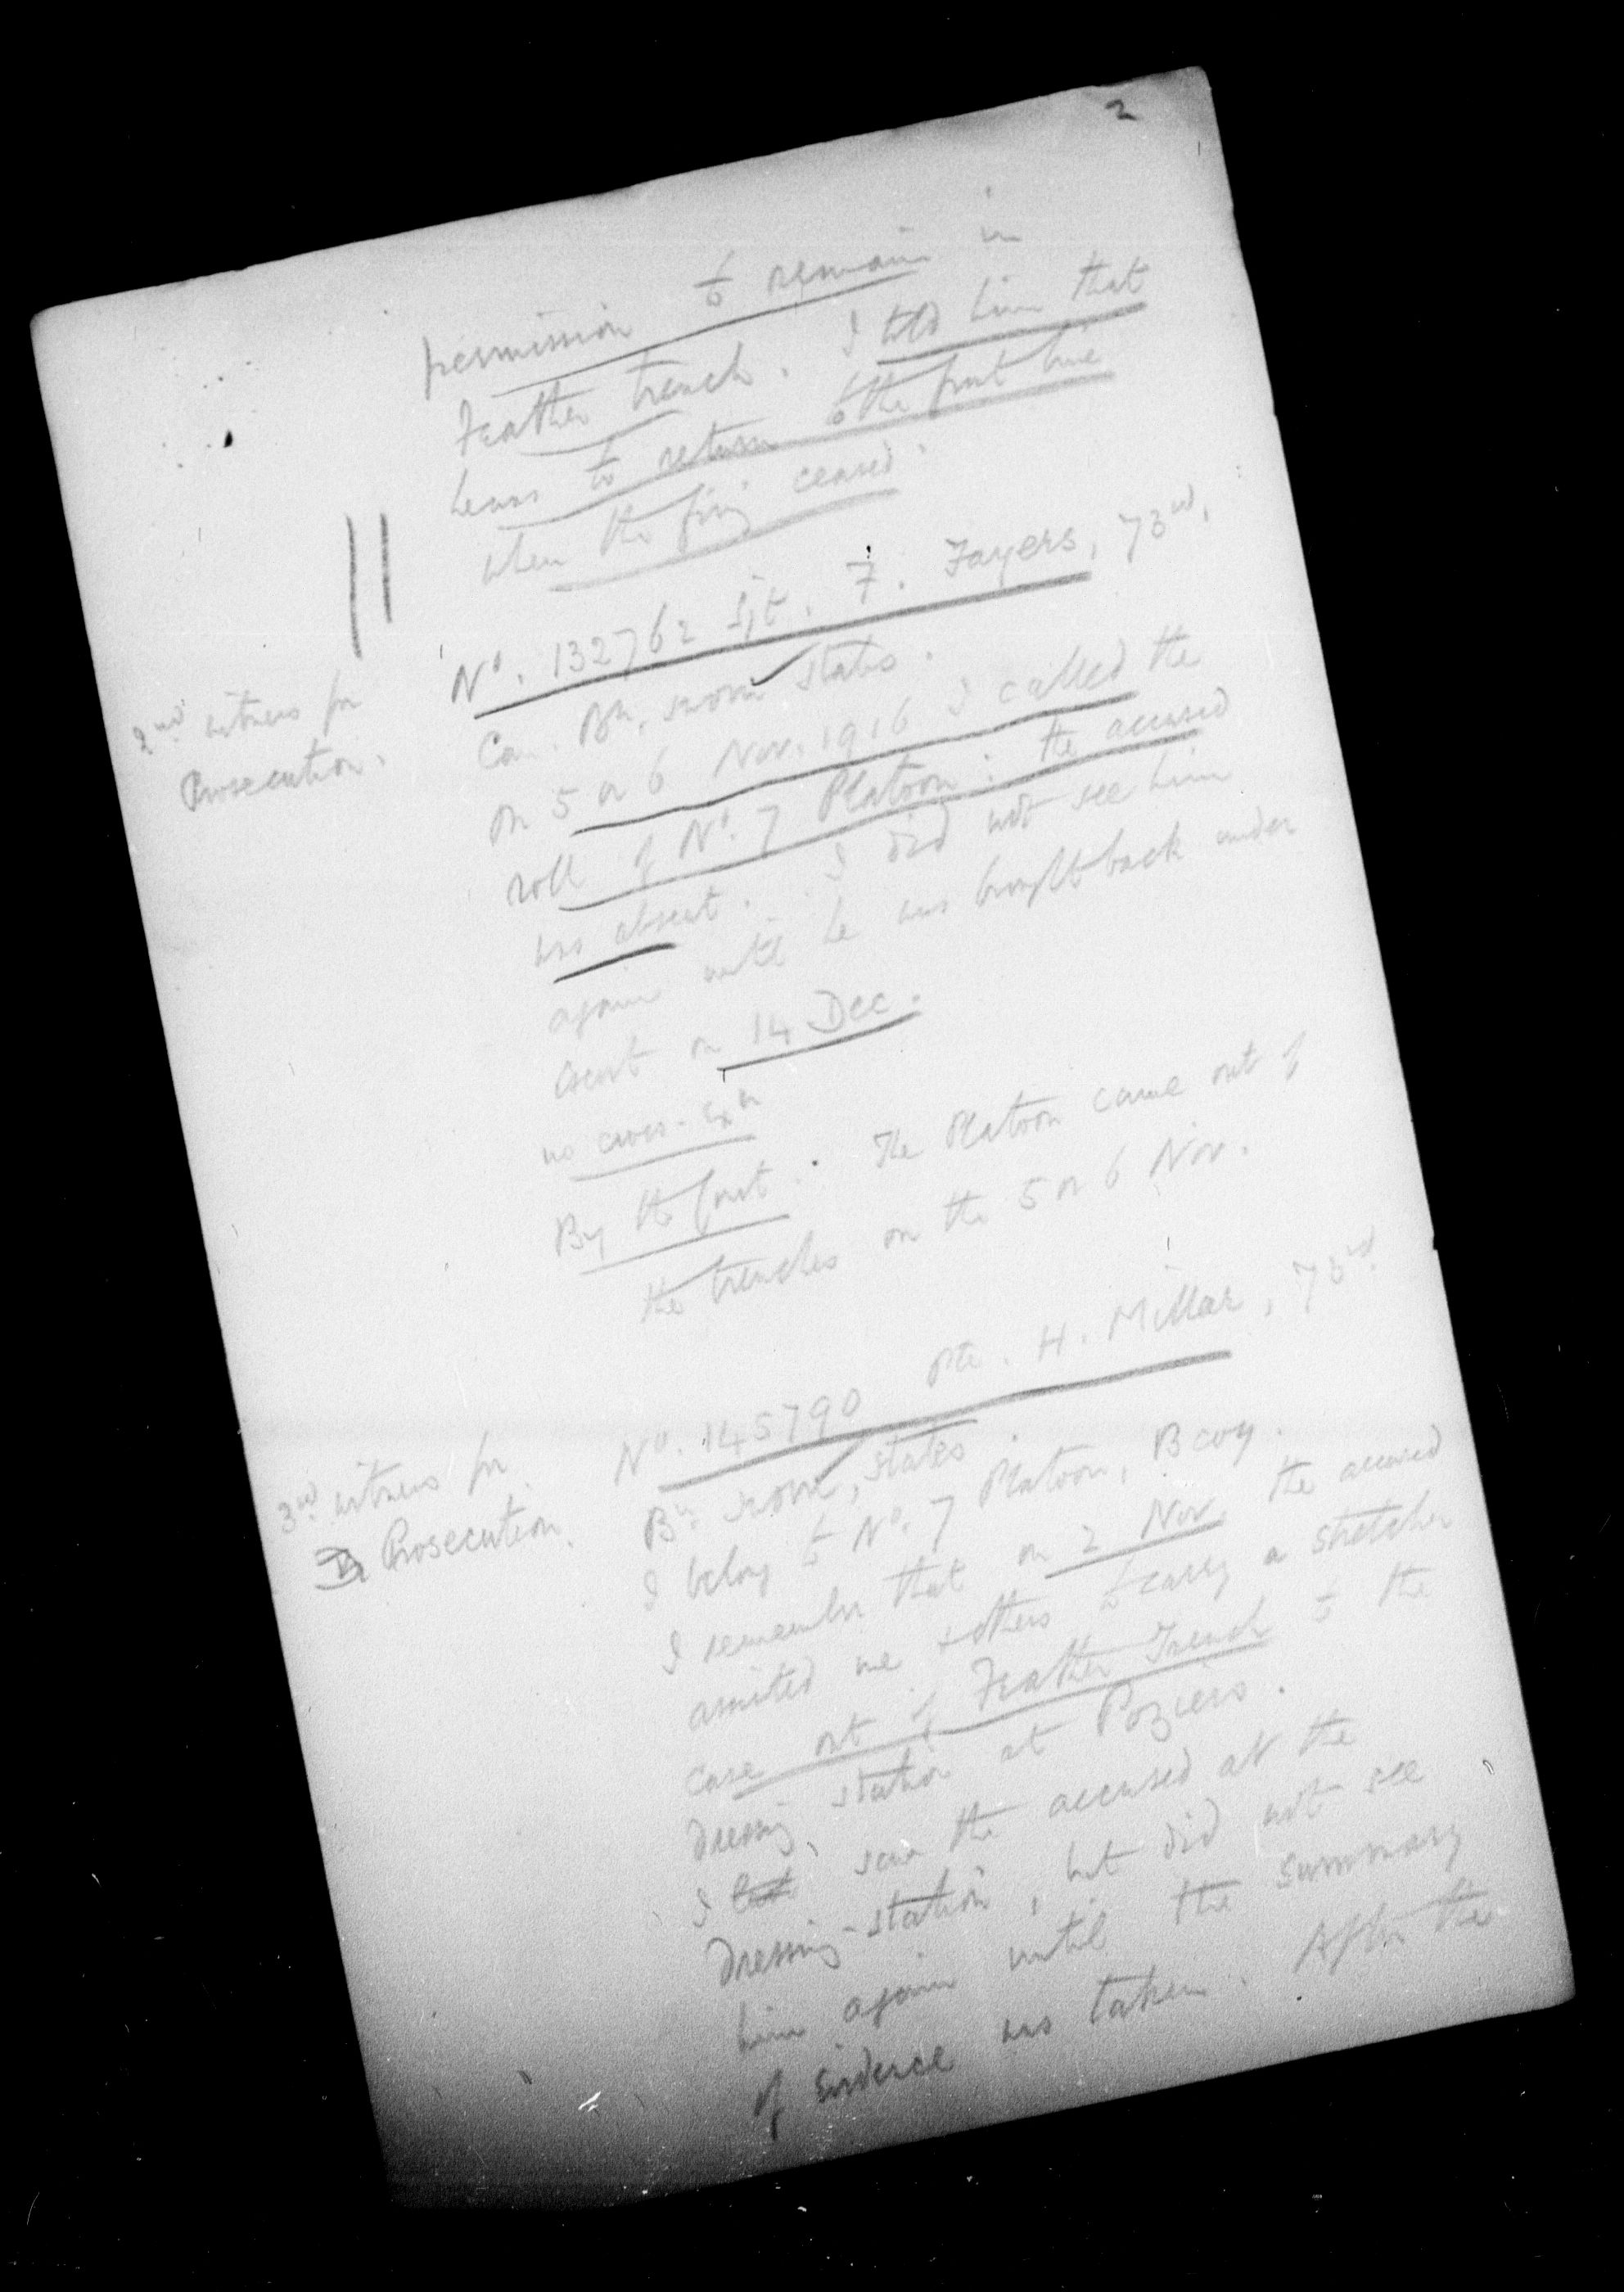 2
permission to remain in
Feather trench. I told him that
he was to return to the front line
when the firing ceased.
2nd witness for
Prosecution.
No. 132762 Sjt. F. Fayers, 73rd,
Can. Bn. sworn states.
On 5 or 6 Nov. 1916 I called the
roll of No. 7 Platoon: the accused
was absent. I did not see him
again until he was brought back under
escort on 14 Dec.
no cross-exn
By the Court. The Platoon came out of
the trenches on the 5 or 6 Nov.
3rd witness for
Prosecution.
No. 145790 Pte. H. Millar, 73rd
Bn. sworn, states.
I belong to No. 7 Platoon, B coy.
I remember that on 2 Nov. the accused
assisted me & others to carry a stretcher
case out of Feather Trench to the
dressing station at Poziers.
I saw the accused at the
dressing-station, but did not see
him again until the summary
of evidence was taken. After the